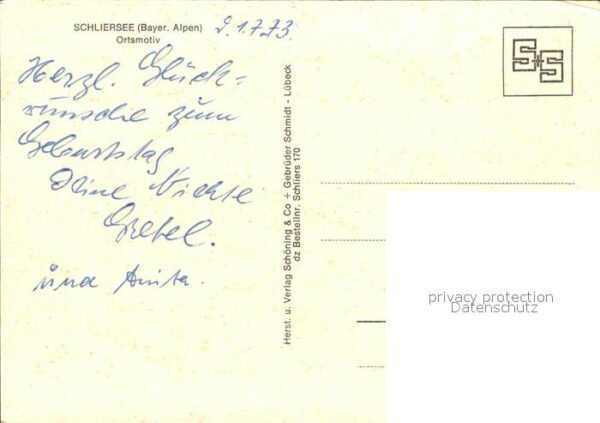 SCHLIERSEE (Bayer. Alpen)
Ortsmotiv
9.1.73.
Herzl. Glück-
wünsche zum
Geburtstag
Deine Nichte
Gretel.
und Anita.
Herst. u. Verlag Schöning & Co + Gebrüder Schmidt - Lübeck
dz Bestellnr. Schliers 170
S+S
privacy protection
Datenschutz